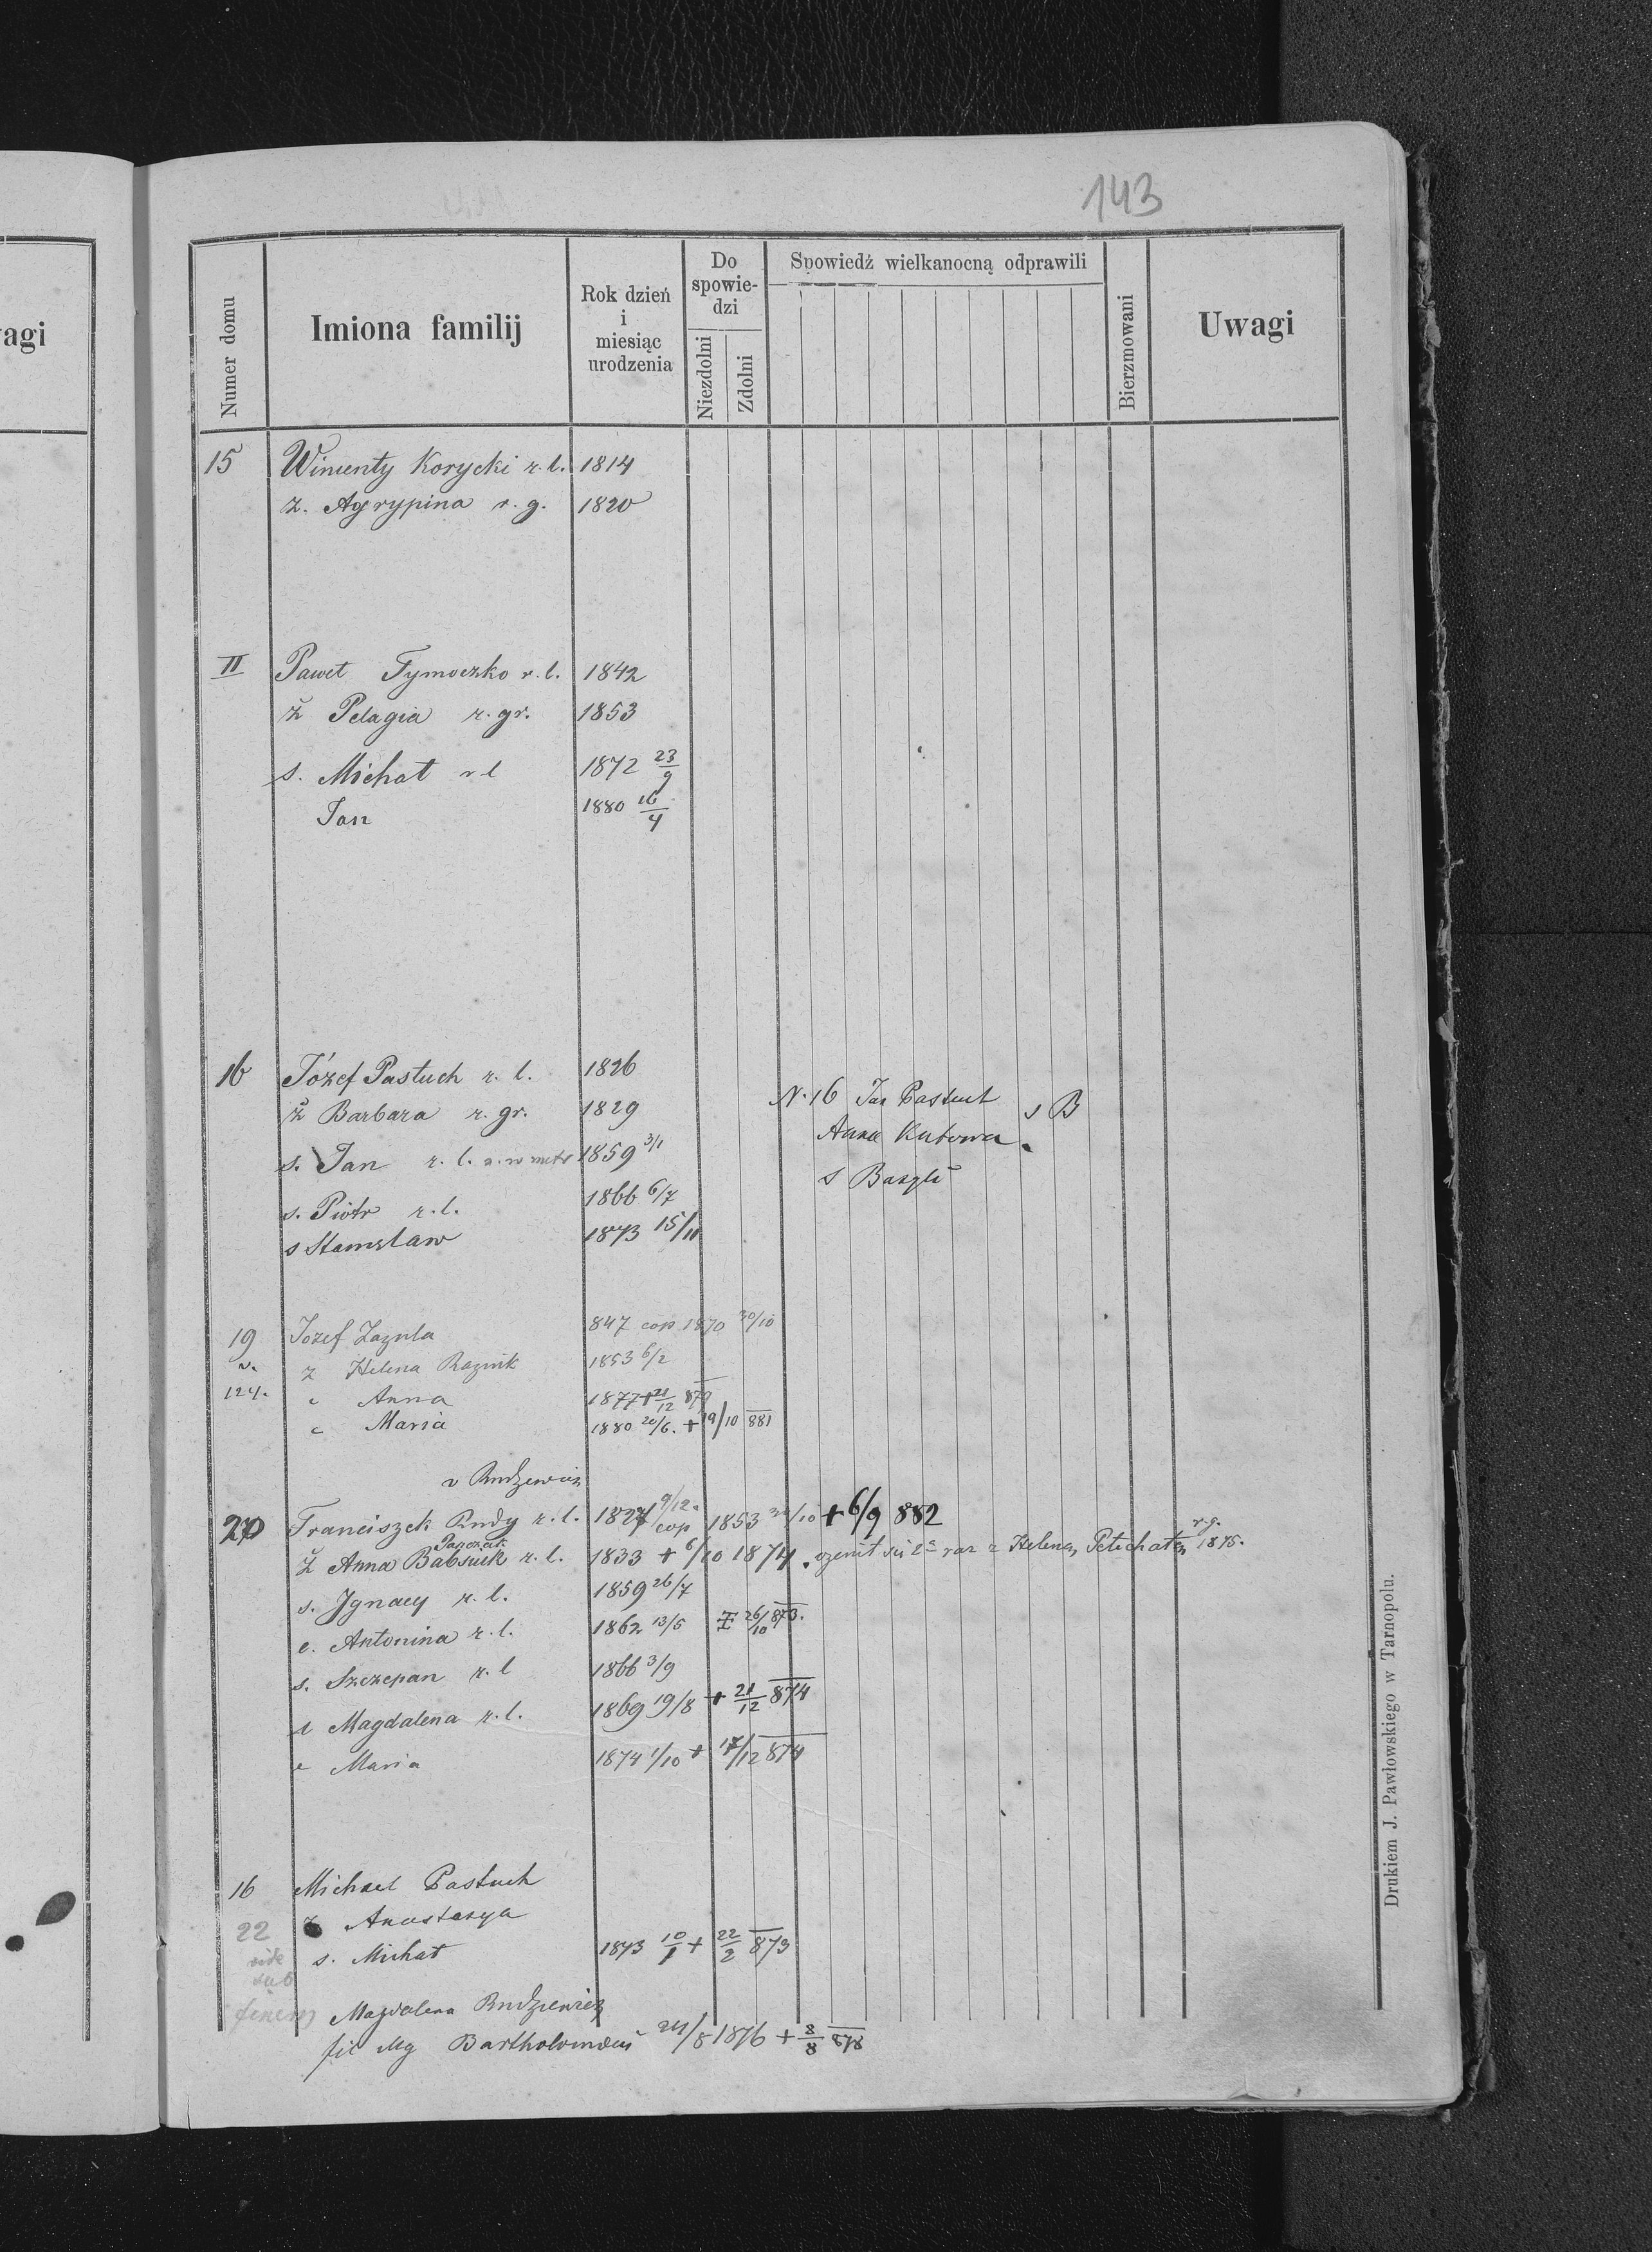 143
agi
Numer domu
Imiona familij
Rok dzień i miesiąc urodzenia
Do spowie-dzi
Niezdolni
Zdolni
Spowiedź wielkanocną odprawili
Bierzmowani
Uwagi
15 Wincenty Korycki r. l. 1814
ż. Agrypina r. g. 1820
II Paweł Tymoczko r. l. 1842
ż Pelagia r. gr. 1853
s. Michał r l 1872 23/9
Jan 1880 16/4
16 Józef Pastuch r. l. 1826
ż Barbara r. gr. 1829
N. 16 Jan Pastuch s B
s. Jan r. l. 1859 3/1
Anna
s. Piotr r. l. 1866 6/7
s Bazyli
s Stanisław 1873 15/11
19 Jozef Zazula 847 cop 1870 30/10
v. ż Helena 1853 6/2
124. c Anna 1877 + 21/12 879
c Maria 1880 20/6. + 19/10 881
v Rudzewicz
20 Franciszek Rudy r. l. 9/12 cop 1853 /10 + 6/9 882
ż Anna Babiuk r. l. 1833 + 6/10 1874. ożenił się 2a raz z Heleną r. g. 1875.
s. Ignacy r. l. 1859 26/7
c. Antonina r. l. 1862 13/5 26/10 873.
s. Szczepan r. l 1866 3/9
c Magdalena r. l. 1869 19/8 + 21/12 874
c Maria 1874 1/10 + 17/12 874
16 Michael Pastuch
22 ż Anastazya
vide s. Michał 1873 10/1 + 22/2 873
sub
finem Magdalena Rudziewicz
fil Mg Bartholomeus 24/8 1876 + 8/8 878
Drukiem J. Pawłowskiego w Tarnopolu.